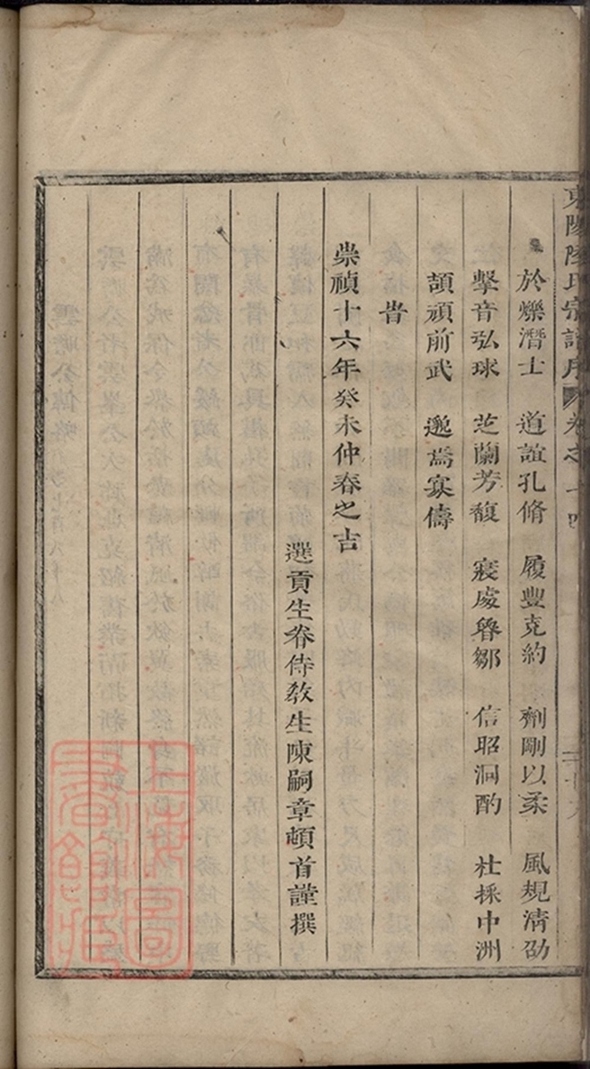 東陽陸氏宗譜序 卷之十四
於爍潛士 道誼孔脩 履豐克約 劑剛以柔 風規清劭
擊音弘球 芝蘭芳馥 寢處魯鄒 信昭洞酌 杜採中洲
頡頏前武 邈焉寡儔
旹
崇禎十六年癸未仲春之吉
選貢生眷侍敎生陳嗣章頓首謹撰
上海圖書館藏